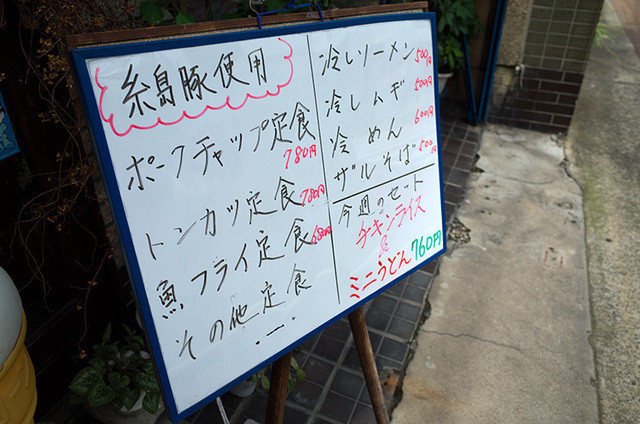 糸島豚使用
ポークチャップ定食
780円
トンカツ定食 780円
魚フライ定食 680円
その他定食
冷しソーメン 500円
冷しムギ 500円
冷めん 600円
ザルそば 500円
今週のセット
チキンライス
&
ミニうどん 760円